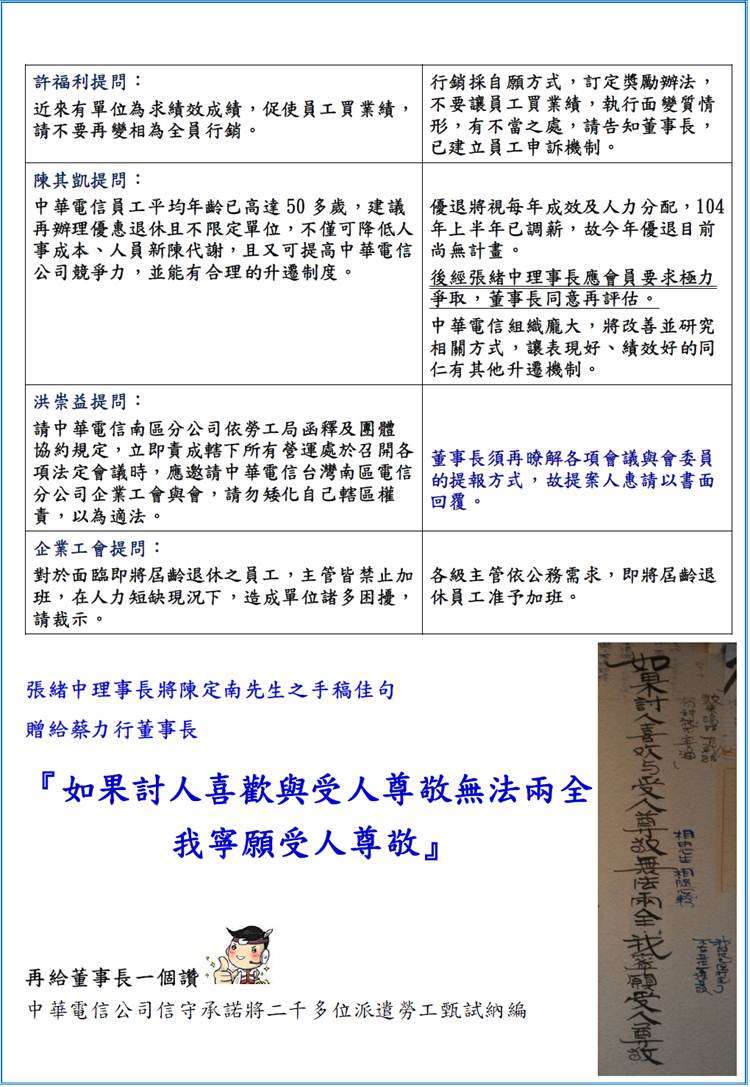 許福利提問：
近來有單位為求績效成績，促使員工買業績，
請不要再變相為全員行銷。
行銷採自願方式，訂定獎勵辦法，
不要讓員工買業績，執行面變質情
形，有不當之處，請告知董事長，
已建立員工申訴機制。
陳其凱提問：
中華電信員工平均年齡已高達 50 多歲，建議
再辦理優惠退休且不限定單位，不僅可降低人
事成本、人員新陳代謝，且又可提高中華電信
公司競爭力，並能有合理的升遷制度。
優退將視每年成效及人力分配，104
年上半年已調薪，故今年優退目前
尚無計畫。
後經張緒中理事長應會員要求極力
爭取，董事長同意再評估。
中華電信組織龐大，將改善並研究
相關方式，讓表現好、績效好的同
仁有其他升遷機制。
洪崇益提問：
請中華電信南區分公司依勞工局函釋及團體
協約規定，立即責成轄下所有營運處於召開各
項法定會議時，應邀請中華電信台灣南區電信
分公司企業工會與會，請勿矮化自己轄區權
責，以為適法。
董事長須再瞭解各項會議與會委員
的提報方式，故提案人惠請以書面
回覆。
企業工會提問：
對於面臨即將屆齡退休之員工，主管皆禁止加
班，在人力短缺現況下，造成單位諸多困擾，
請裁示。
各級主管依公務需求，即將屆齡退
休員工准予加班。
張緒中理事長將陳定南先生之手稿佳句
贈給蔡力行董事長
『如果討人喜歡與受人尊敬無法兩全
我寧願受人尊敬』
如果討人喜欢与受人尊敬無法兩全我寧願受人尊敬
再給董事長一個讚
中華電信公司信守承諾將二千多位派遣勞工甄試納編